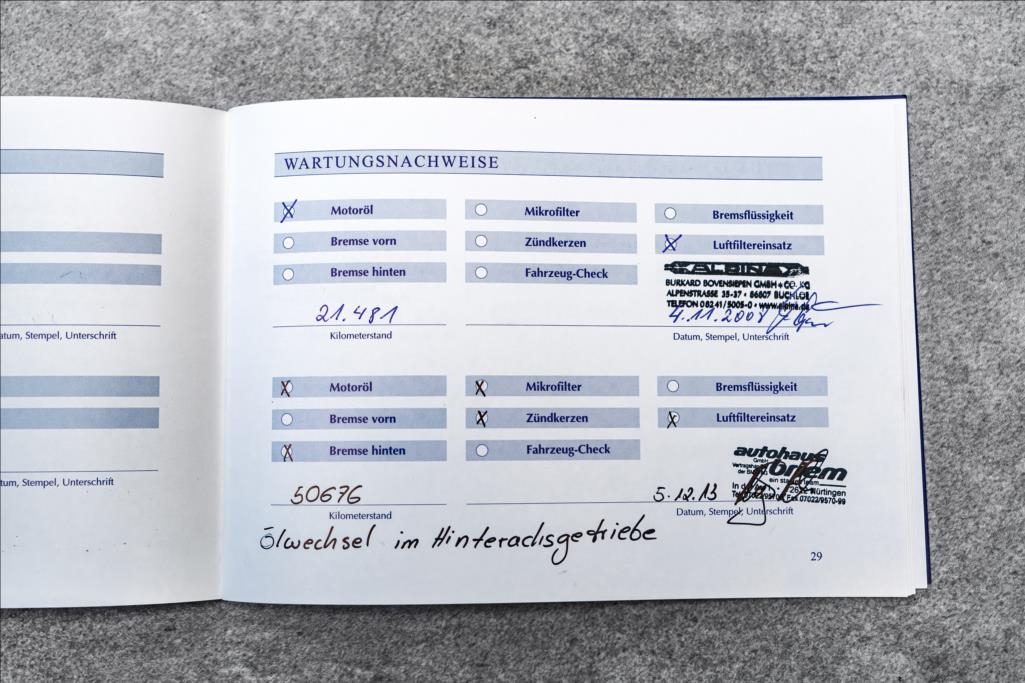 WARTUNGSNACHWEISE
Motoröl Mikrofilter Bremsflüssigkeit
Bremse vorn Zündkerzen Luftfiltereinsatz
Bremse hinten Fahrzeug-Check
ALPINA
BURKARD BOVENSIEPEN GMBH + CO. KG
ALPENSTRASSE 35-37 • 86807 BUCHLOE
TELEFON 08241/5005-0 • www.alpina.de
21.481 4.11.2008
Kilometerstand Datum, Stempel, Unterschrift
atum, Stempel, Unterschrift
Motoröl Mikrofilter Bremsflüssigkeit
Bremse vorn Zündkerzen Luftfiltereinsatz
Bremse hinten Fahrzeug-Check
autohaus
GmbH
ein starkes Team
50676 5.12.13
Nürtingen
Fax 07022/9570-99
Kilometerstand Datum, Stempel, Unterschrift
tum, Stempel, Unterschrift
Ölwechsel im Hinterachsgetriebe
29